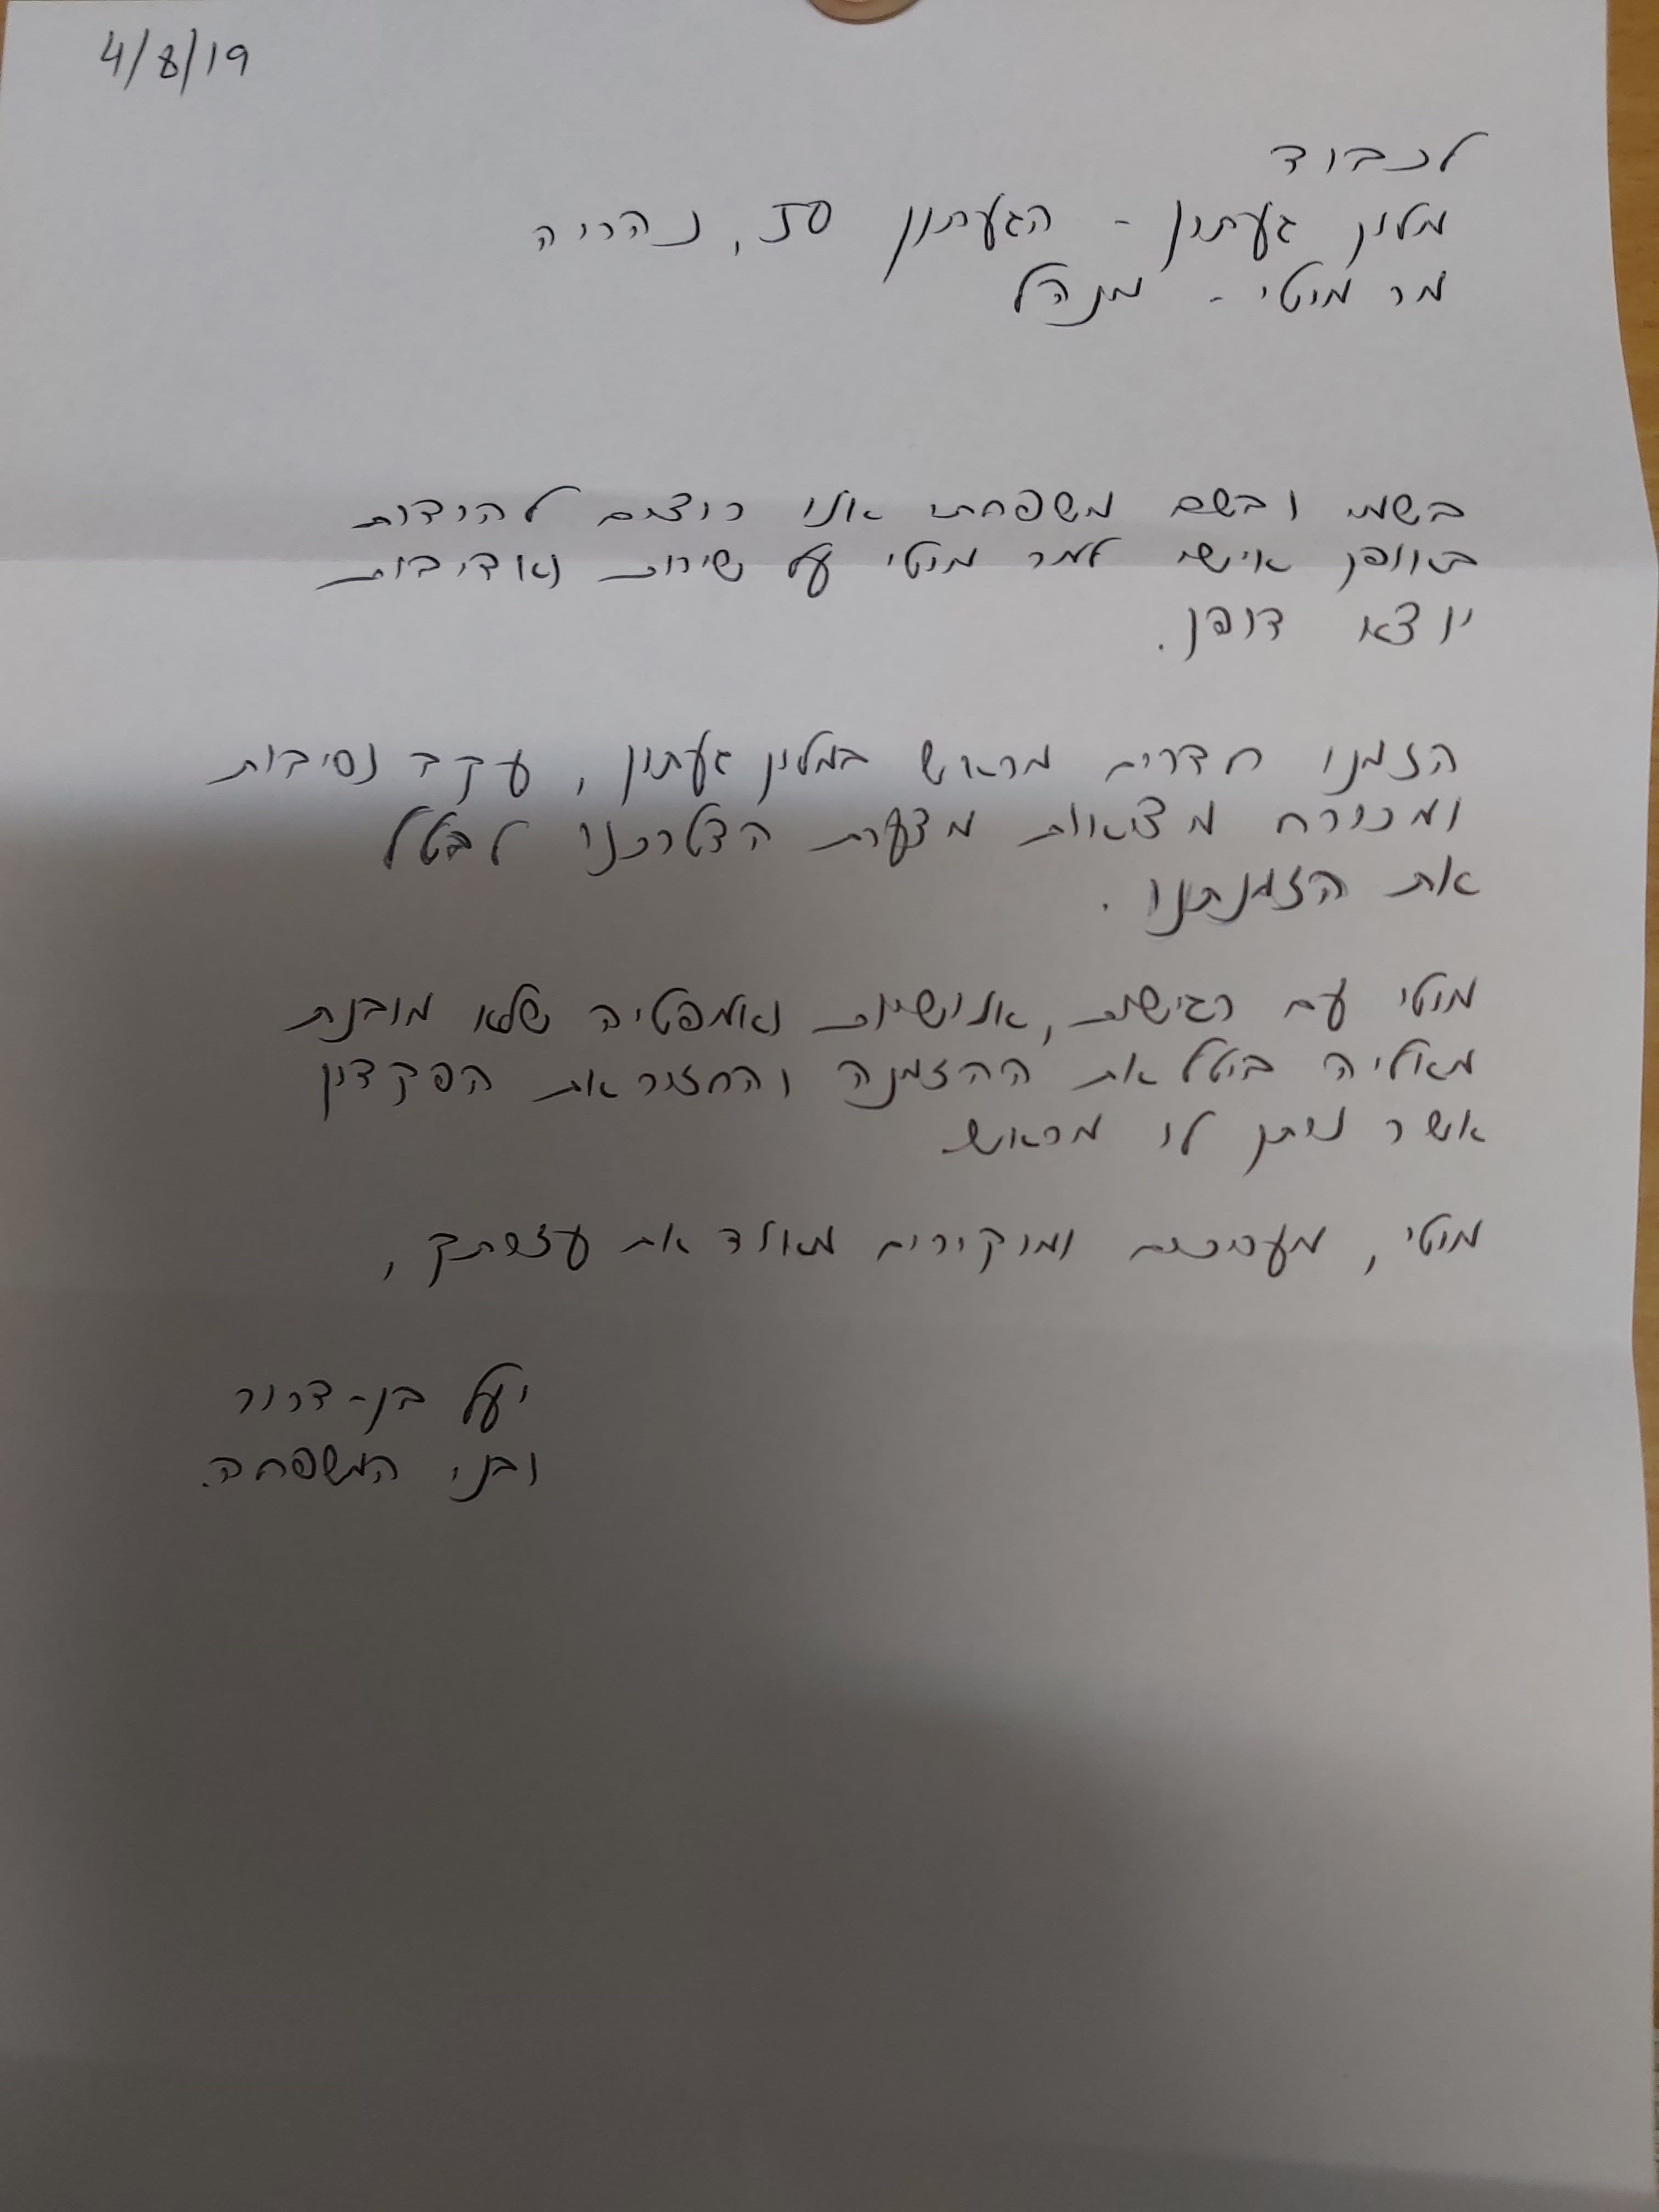 4/8/19
לכבוד
מלון געתון - הגעתון 50, נהריה
מר מוטי - מנהל
בשמי ובשם משפחתי אנו רוצים להודות
באופן אישי למר מוטי על שירות ואדיבות
יוצא דופן.
הזמנו חדרים מראש במלון געתון, עקב נסיבות
ומכורח מציאות מצערת הצטרכנו לבטל
את הזמנתנו.
מוטי עם רגישות, אנושיות ואמפטיה שלא מובנת
מאליה ביטל את ההזמנה והחזיר את הפקדון
אשר ניתן לו מראש.
מוטי, מעריכים ומוקירים מאוד את עזרתך,
יעל בן-דרור
ובני המשפחה.